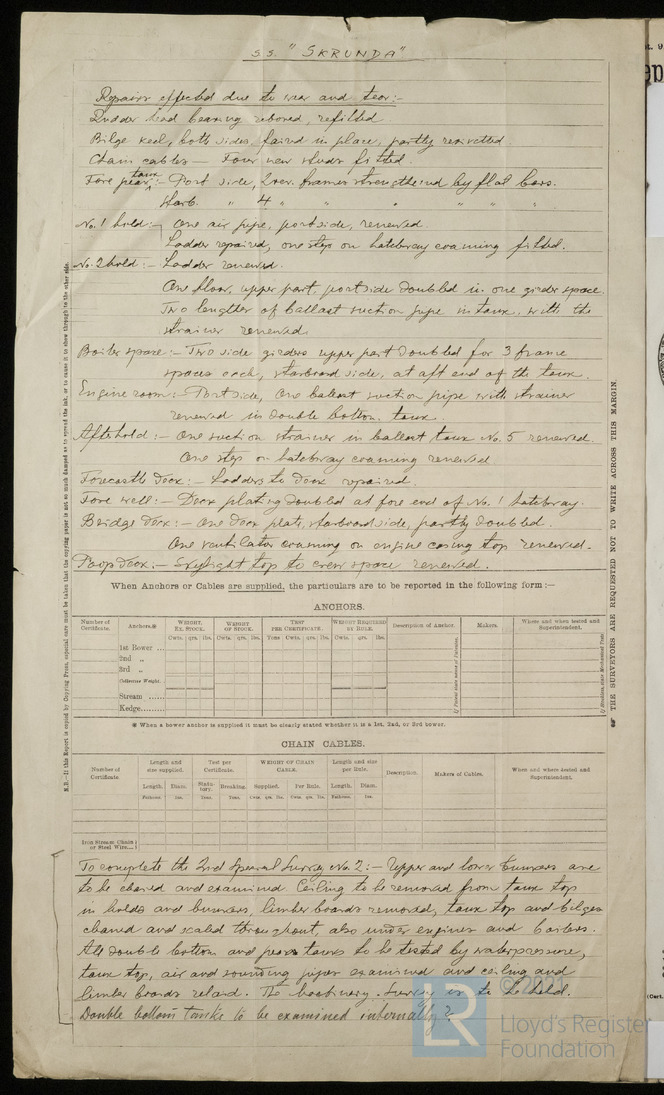 s.s. "SKRUNDA"
Repairs effected due to wear and tear:-
Rudder head bearing rebored, refitted.
Bilge keel, both sides, faired in place, partly rerivetted.
Chain cables — Four new studs fitted.
Fore peak tank:- Port side, 2 rev. frames strengthened by flat bars.
Starb. " 4 " " " " " "
No. 1 hold:- One air pipe, portside, renewed.
Ladder repaired, one step on hatchway coaming fitted.
No. 2 hold:- Ladder renewed.
One floor, upper part, portside doubled in one girder space.
Two lengths of ballast suction pipe in tank, with the
strainer renewed.
Boiler space:- Two side girders upper part doubled for 3 frame
spaces each, starboard side, at aft end of the tank.
Engine room:- Portside, One ballast suction pipe with strainer
renewed in double bottom tank.
Afterhold:- One suction strainer in ballast tank No. 5 renewed.
One step on hatchway coaming renewed.
Forecastle deck:- Ladders to deck repaired.
Fore well:- Deck plating doubled at fore end of No. 1 hatchway.
Bridge deck:- One deck plate, starboard side, partly doubled.
One ventilator coaming on engine casing top renewed.
Poop deck:- Skylight top to crew space renewed.
When Anchors or Cables are supplied, the particulars are to be reported in the following form:—
ANCHORS.
Number of Certificate. Anchors.* WEIGHT, EX. STOCK. WEIGHT OF STOCK. TEST PER CERTIFICATE. WEIGHT REQUIRED BY RULE. Description of Anchor. Makers. Where and when tested and Superintendent.
Cwts. qrs. lbs. Cwts. qrs. lbs. Tons Cwts. qrs. lbs. Cwts. qrs. lbs.
1st Bower ...
2nd "
3rd "
Collective Weight.
Stream ......
Kedge......
* When a bower anchor is supplied it must be clearly stated whether it is a 1st, 2nd, or 3rd bower.
CHAIN CABLES.
Number of Certificate. Length and size supplied. Test per Certificate. WEIGHT OF CHAIN CABLE. Length and size per Rule. Description. Makers of Cables. Where and where tested and Superintendent.
Length. Diam. Statutory. Breaking. Supplied. Per Rule. Length. Diam.
Fathoms. Ins. Tons. Tons. Cwts. qrs. lbs. Cwts. qrs. lbs. Fathoms. Ins.
Iron Stream Chain
or Steel Wire...
To complete the 2nd Special Survey No. 2:- Upper and lower bunkers are
to be cleaned and examined. Ceiling to be removed from tank top
in holds and bunkers, limber boards removed, tank top and bilges
cleaned and scaled throughout, also under engines and boilers.
All double bottom and peak tanks to be tested by waterpressure,
tank top, air and sounding pipes examined and ceiling and
limber boards relaid. The machinery Survey is to be held.
Double bottom tanks to be examined internally?
N.B.—If this Report is copied by Copying Press, especial care must be taken that the copying paper is not so much damped as to spread the ink, or to cause it to show through to the other side.
THE SURVEYORS ARE REQUESTED NOT TO WRITE ACROSS THIS MARGIN.
© 2021
LR
Lloyd's Register
Foundation